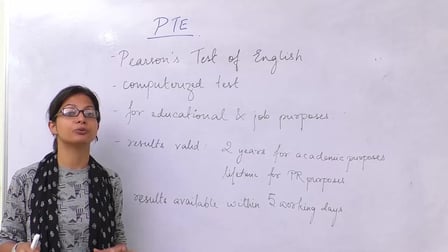 PTE
- Pearson's Test of English
- computerized test
- for educational & job purposes.
- results valid : 2 years for academic purposes
lifetime for PR purposes
results available within 5 working days